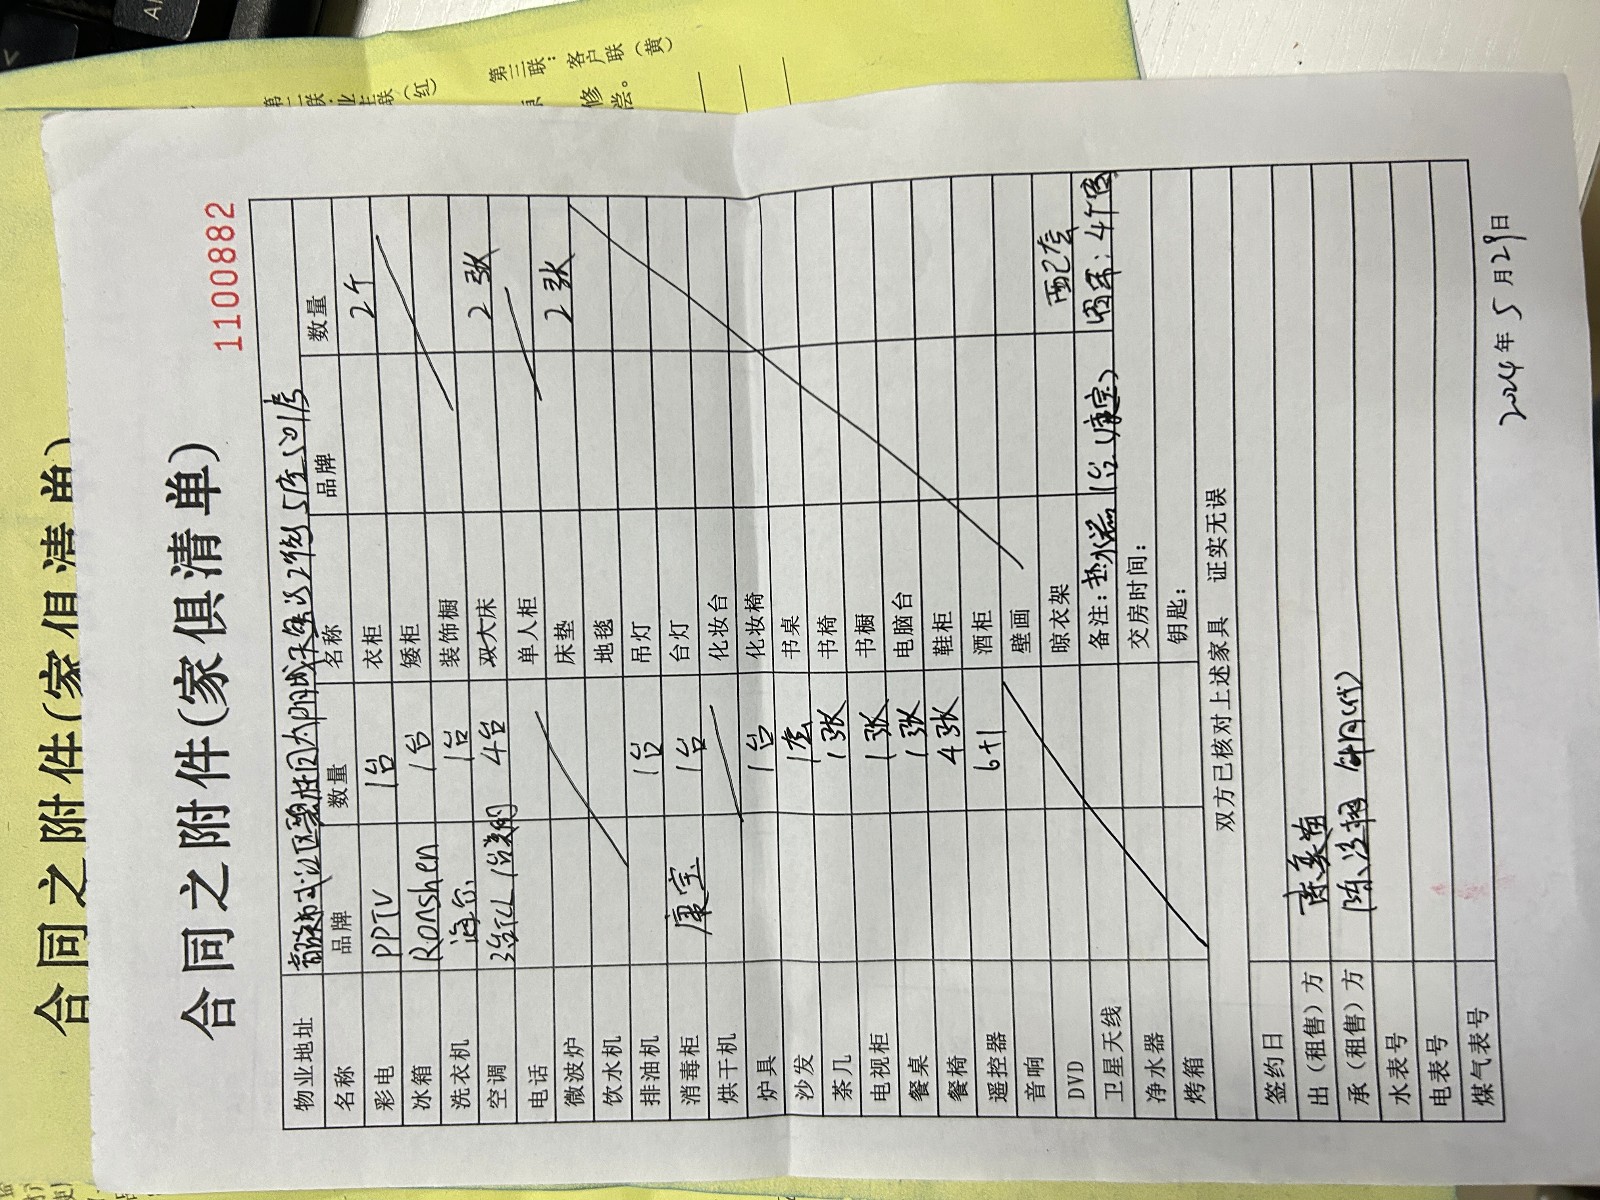 第二联:业主联(红)
第三联:客户联(黄)
修
偿。
合同之附件(家俱清单)
合同之附件(家俱清单)
1100882
物业地址 市 区 园 5座501房
名称 品牌 数量 名称 品牌 数量
彩电 PPTV 1台 衣柜 2个
冰箱 Ronshen 1台 矮柜
洗衣机 海尔 1台 装饰橱
空调 3台TCL 1台 4台 双大床 2张
电话 单人柜
微波炉 床垫 2张
饮水机 地毯
排油机 1台 吊灯
消毒柜 康宝 1台 台灯
烘干机 化妆台
炉具 1台 化妆椅
沙发 1套 书桌
茶几 1张 书椅
电视柜 1张 书橱
餐桌 1张 电脑台
餐椅 4张 鞋柜
遥控器 6个 酒柜
音响 壁画
DVD 晾衣架 配套
卫星天线 备注:热水器1台(康宝) 窗帘:4个窗
净水器 交房时间:
烤箱 钥匙:
双方已核对上述家具 证实无误
签约日
出(租售)方
承(租售)方
水表号
电表号
煤气表号
2024年5月29日